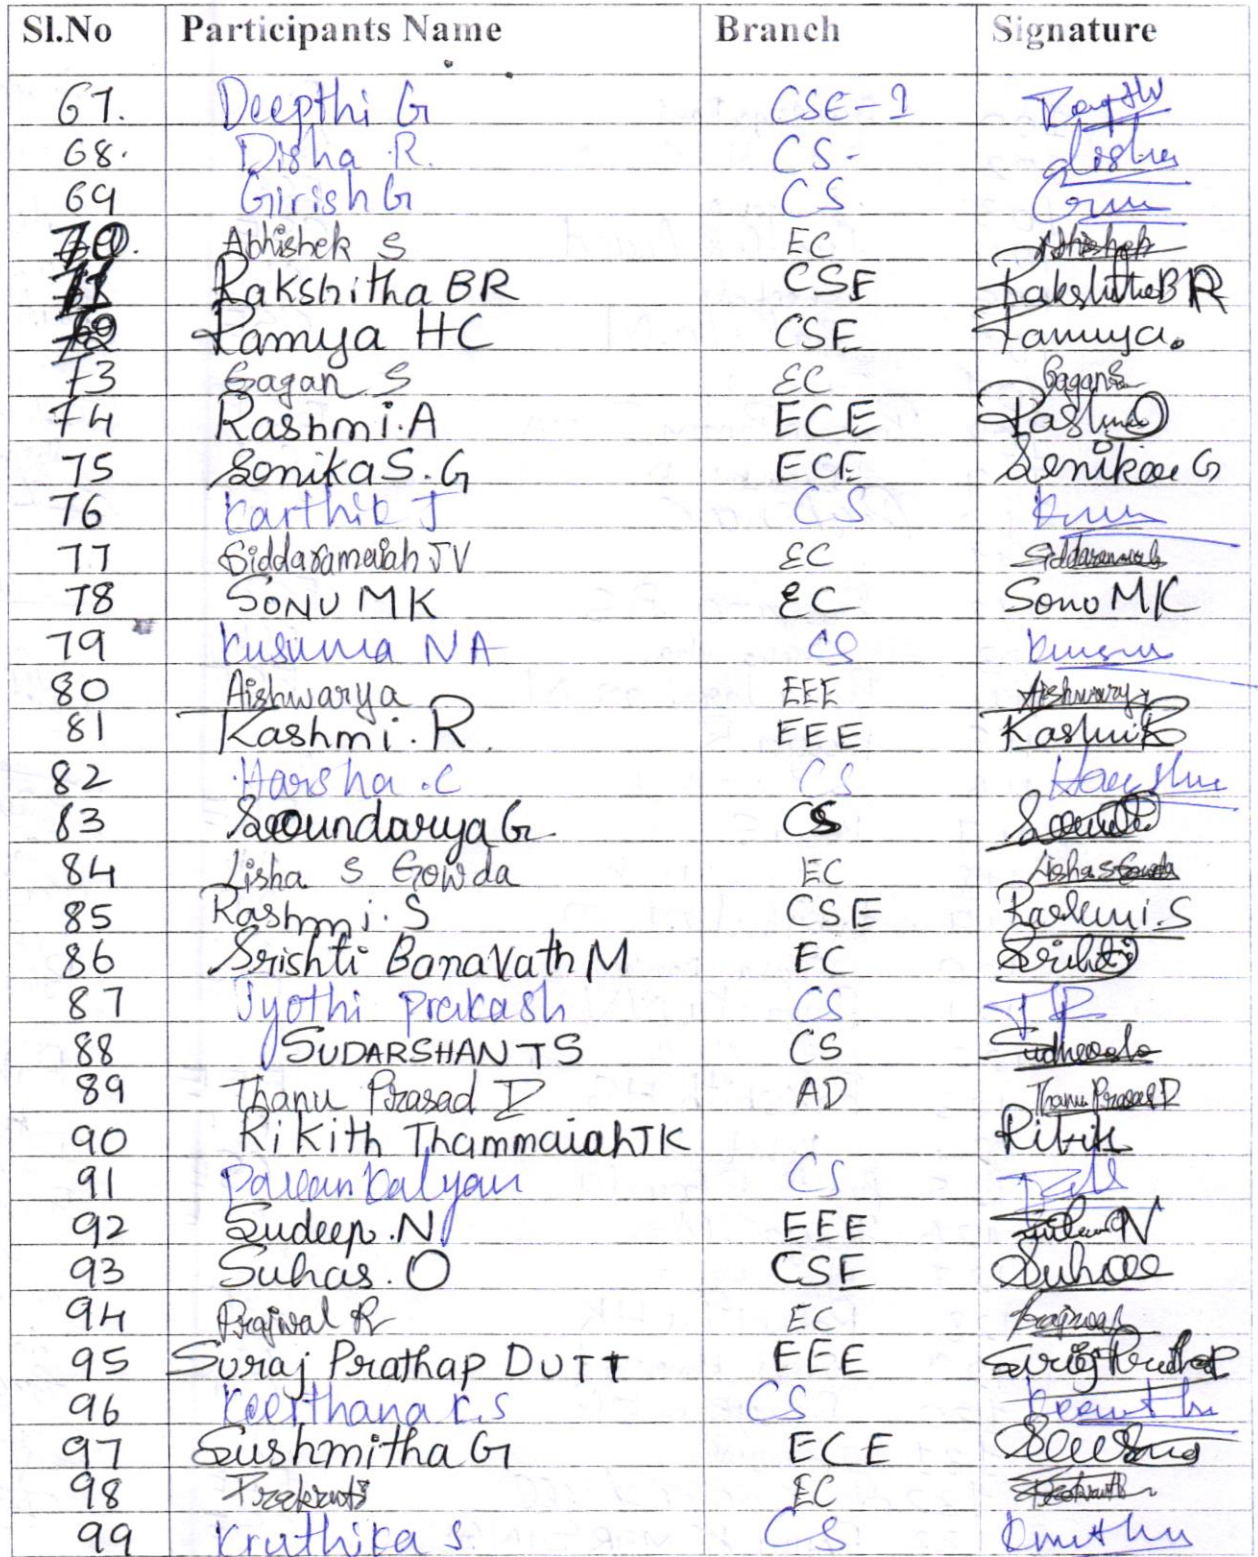 Sl.No Participants Name Branch Signature
67. Deepthi G CSE-1 Deepthi
68. Disha R. CS- disha
69 Girish G CS
70. Abhishek S EC Abhishek
71 Rakshitha BR CSE Rakshitha BR
72 Ramya HC CSE Ramya.
73 Gagan S EC Gagan S
74 Rashmi.A ECE Rashmi
75 Sonika S.G ECE Sonika G
76 Karthik J CS
77 Siddaramaiah JV EC Siddaramaiah
78 SONU MK EC Sonu MK
79 Kusuma NA CS
80 Aishwarya EEE Aishwarya
81 Rashmi.R. EEE Rashmi R
82 Harsha.C CS Harsha
83 Soundarya G CS
84 Lisha S Gowda EC Lisha S Gowda
85 Rashmi.S CSE Rashmi.S
86 Srishti Banavath M EC Srishti
87 Jyothi Prakash CS JP
88 SUDARSHAN T S CS
89 Thanu Prasad D AD Thanu Prasad D
90 Rikith Thammaiah TK Rikith
91 Pawan Kalyan CS
92 Sudeep.N EEE
93 Suhas.O CSE Suhas
94 Prajwal R EC Prajwal
95 Suraj Prathap DUTT EEE Suraj Prathap
96 Keerthana K.S CS Keerthana
97 Sushmitha G ECE
98 EC
99 Kruthika S CS